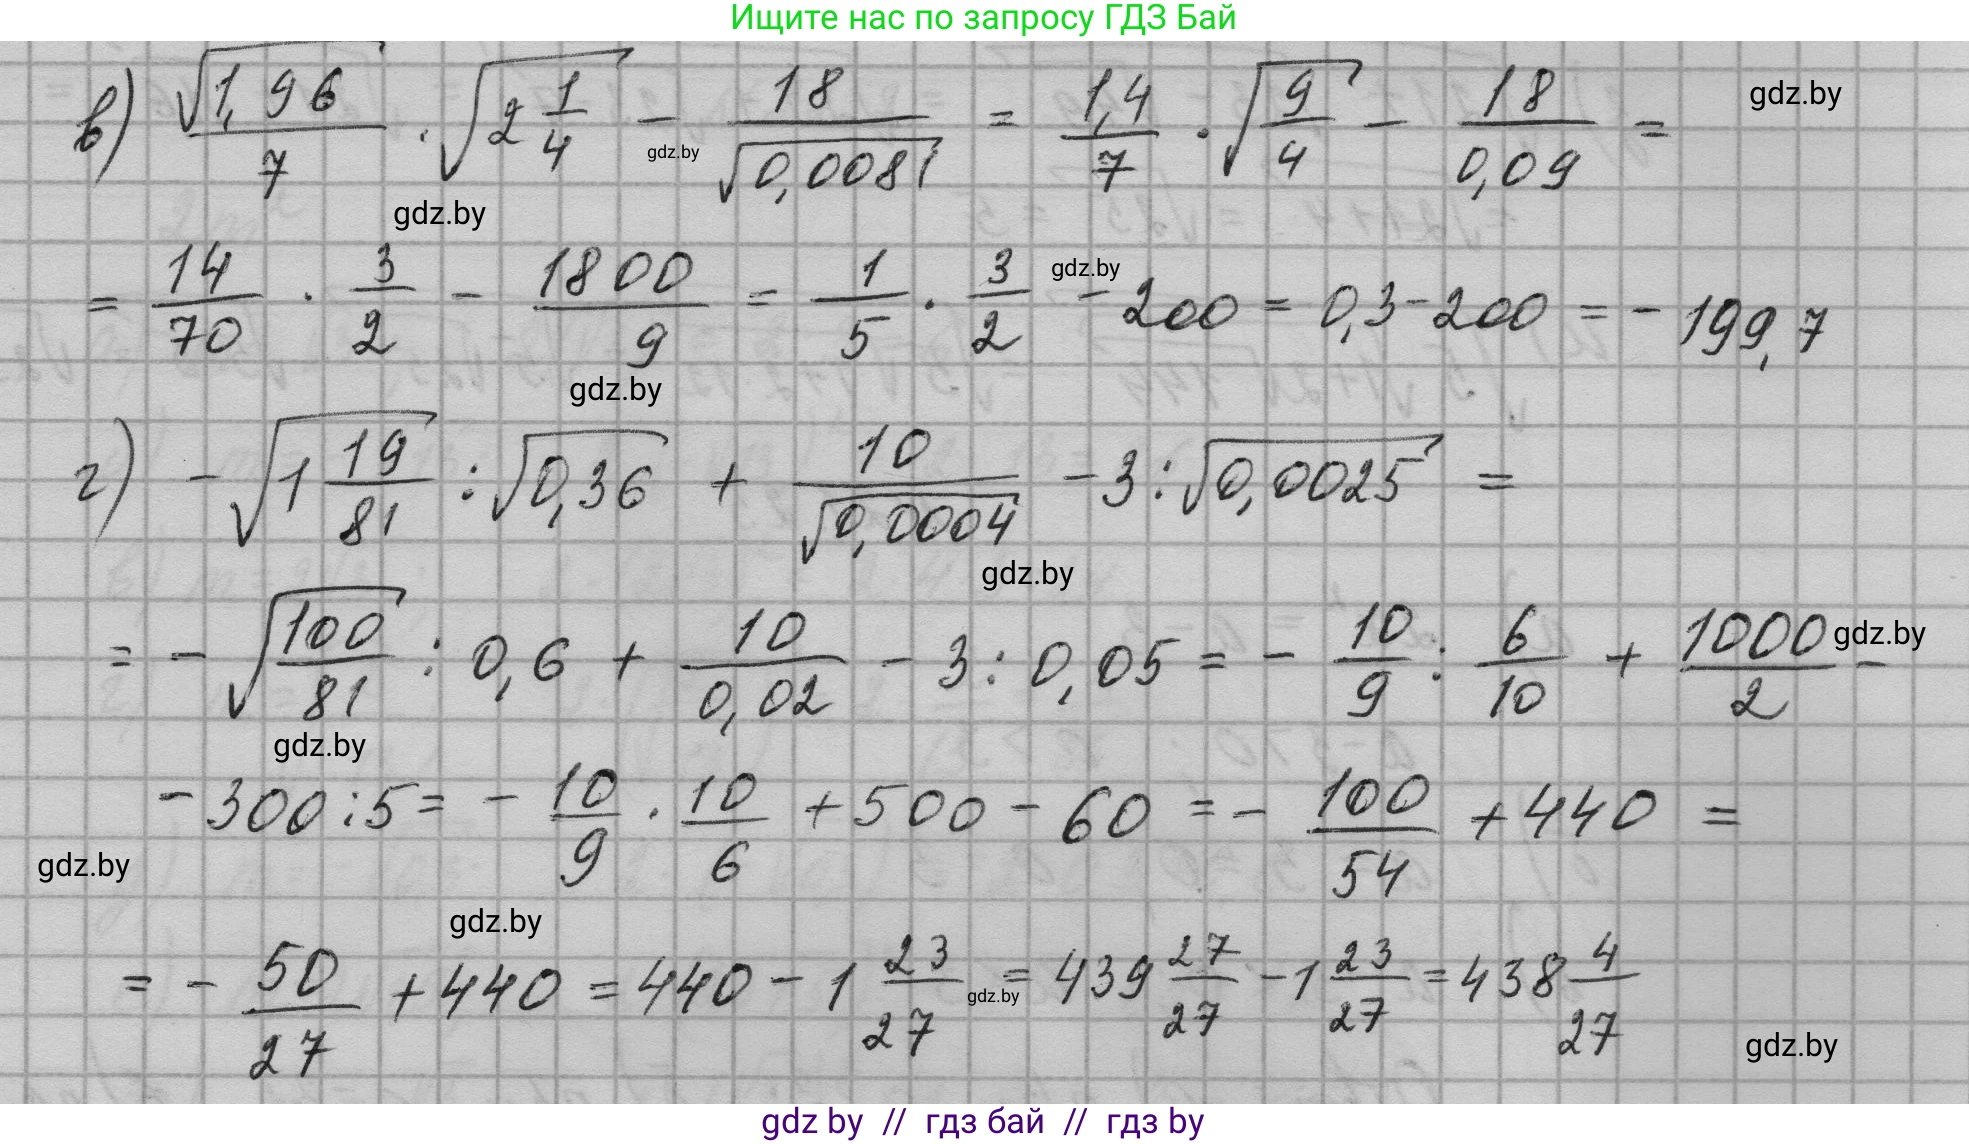 Ищите нас по запросу ГДЗ Бай
в) √1,96/7 · √(2 1/4) − 18/√0,0081 = 1,4/7 · √(9/4) − 18/0,09 =
gdz.by
gdz.by
gdz.by
= 14/70 · 3/2 − 1800/9 = 1/5 · 3/2 − 200 = 0,3 − 200 = − 199,7
gdz.by
gdz.by
г) − √(1 19/81) : √0,36 + 10/√0,0004 − 3 : √0,0025 =
gdz.by
= − √(100/81) : 0,6 + 10/0,02 − 3 : 0,05 = − 10/9 : 6/10 + 1000/2 −
gdz.by
gdz.by
− 300 : 5 = − 10/9 · 10/6 + 500 − 60 = − 100/54 + 440 =
gdz.by
gdz.by
= − 50/27 + 440 = 440 − 1 23/27 = 439 27/27 − 1 23/27 = 438 4/27
gdz.by
gdz.by
gdz by // гдз бай // гдз by